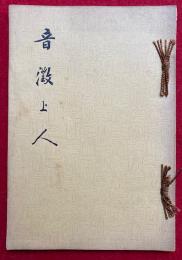 音澂上人